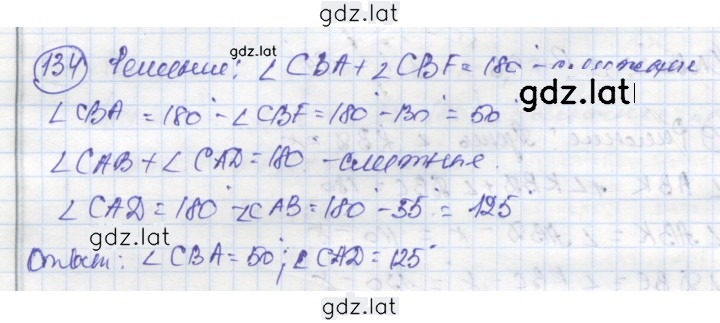 gdz.lat
gdz.lat
134 Решение: ∠CBA + ∠CBF = 180° - смежные
∠CBA = 180° - ∠CBF = 180° - 130° = 50°
gdz.lat
∠CAB + ∠CAD = 180° - смежные.
∠CAD = 180° - ∠CAB = 180° - 55 = 125
gdz.lat
Ответ: ∠CBA = 50°; ∠CAD = 125°
gdz.lat